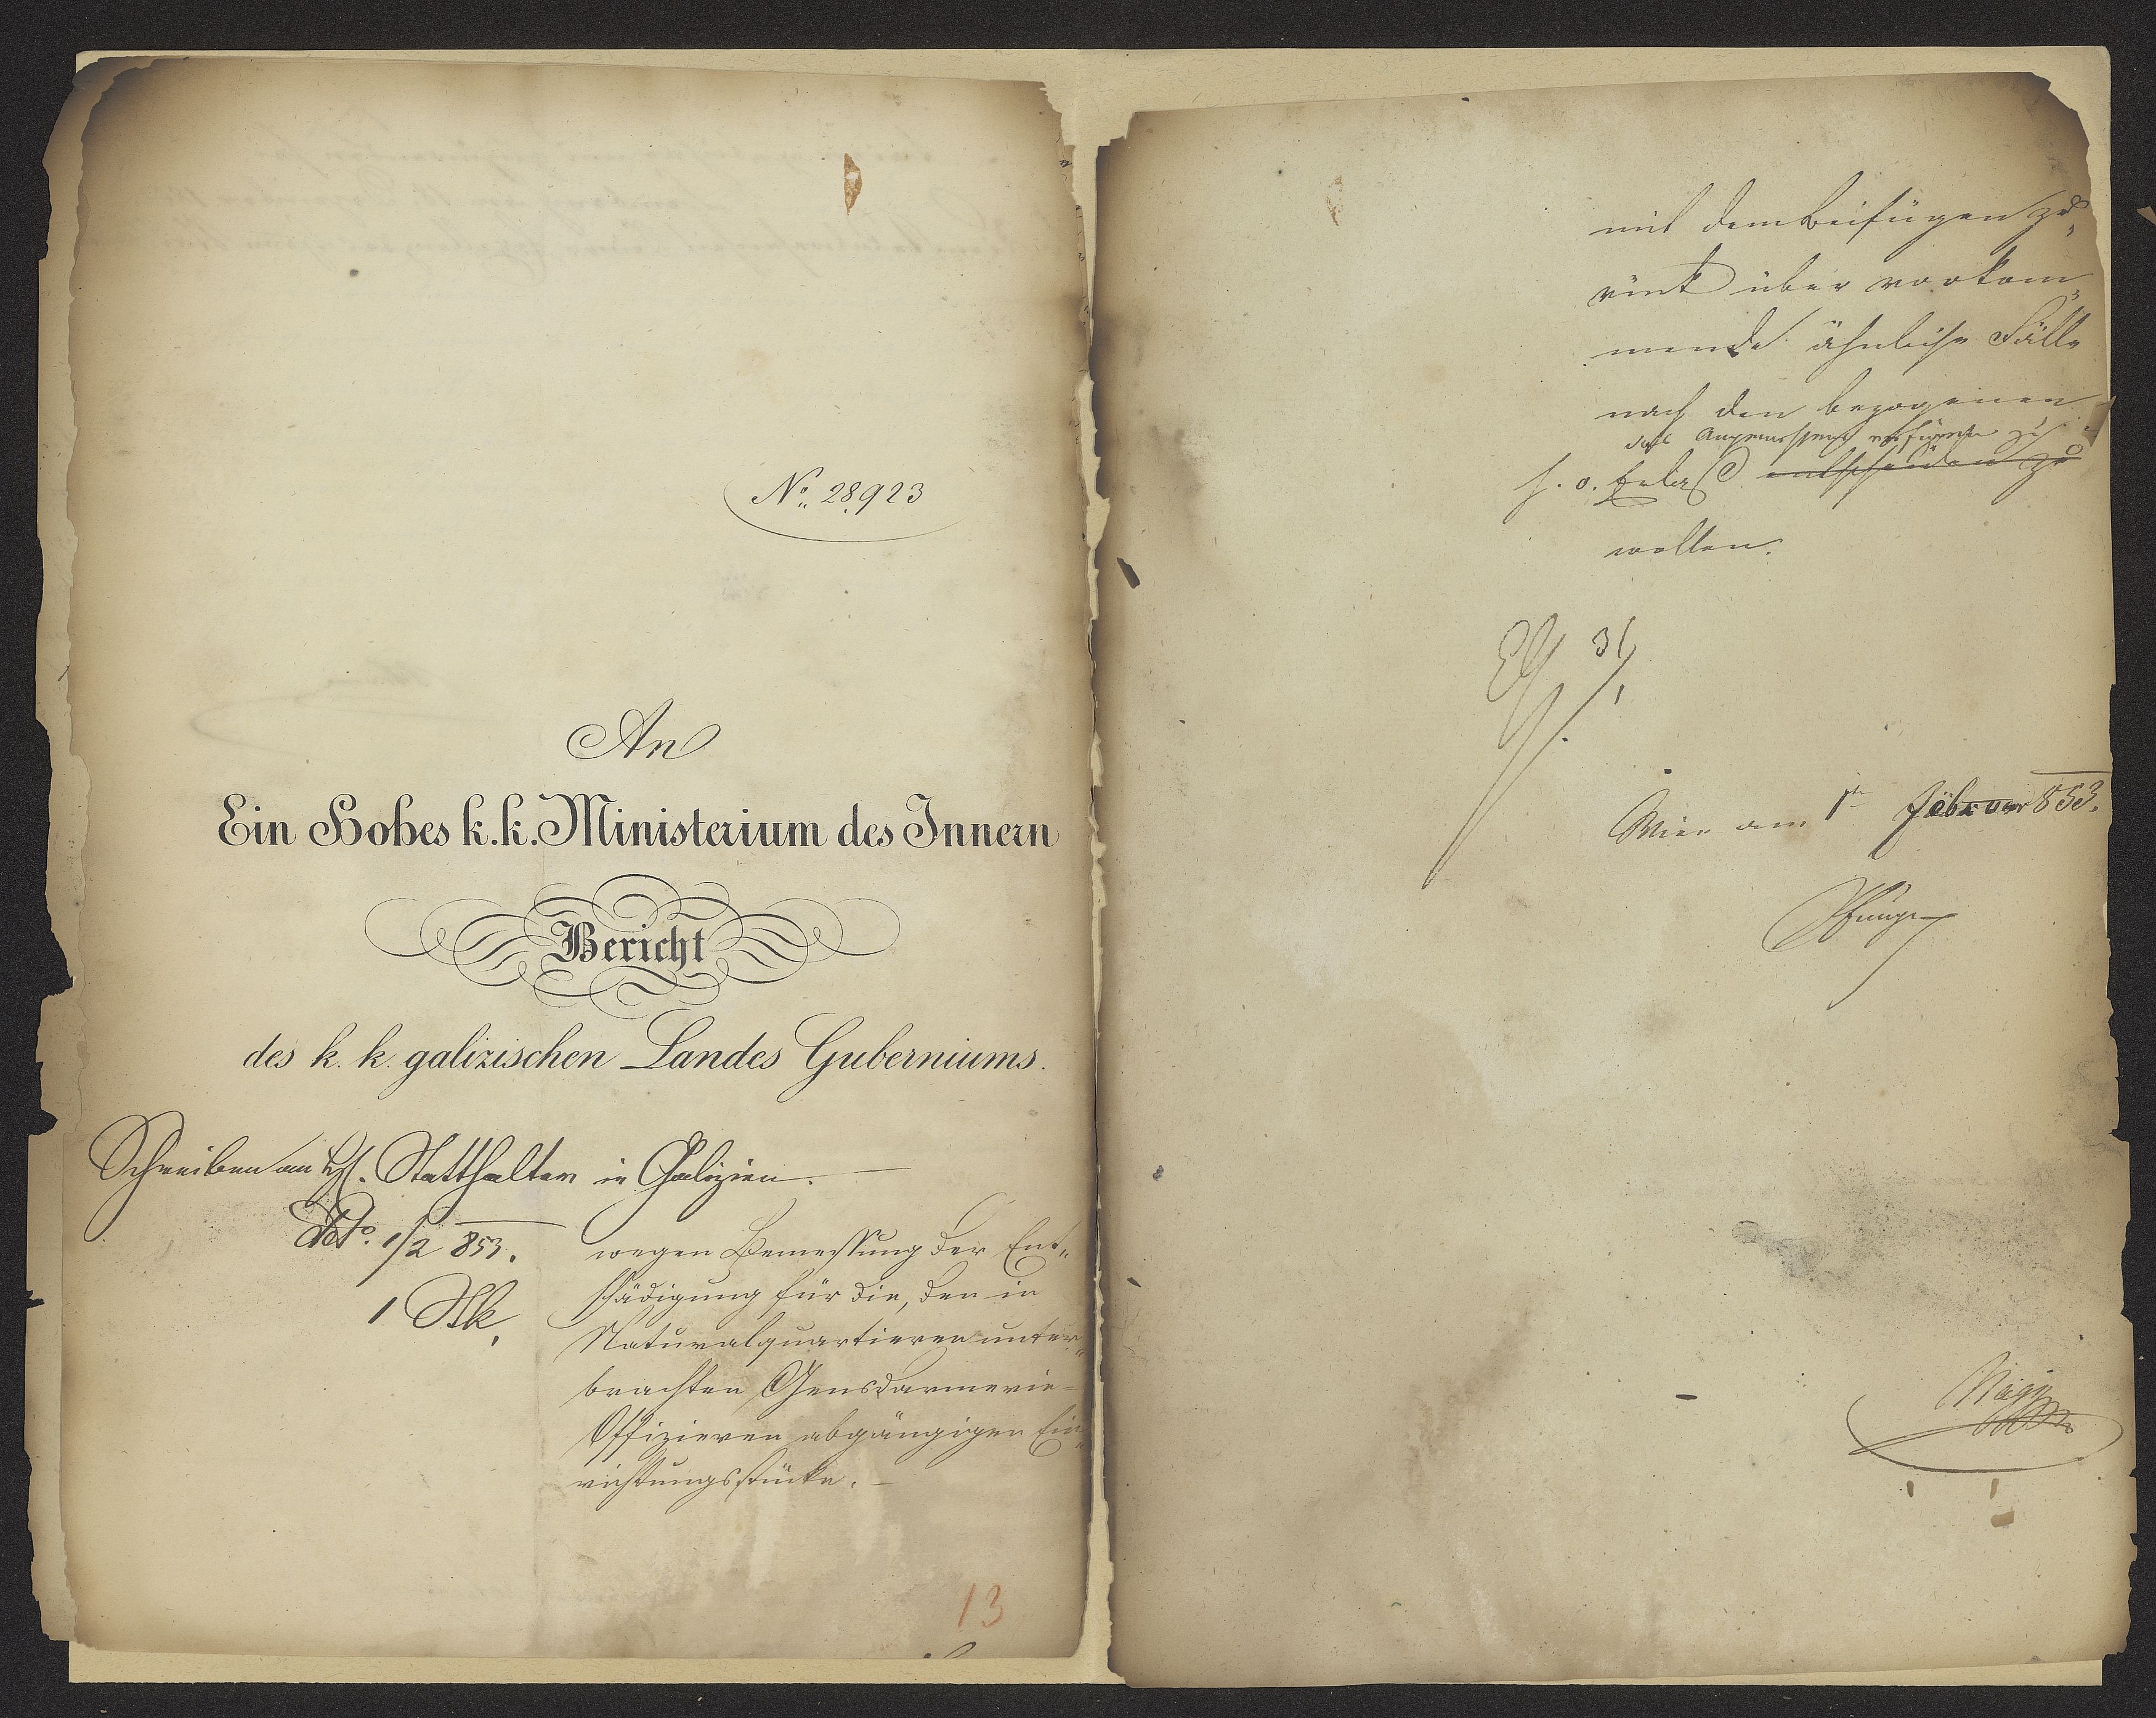 No. 28,923
An
Ein Hohes k.k. Ministerium des Innern
Bericht
des k. k. galizischen Landes Guberniums.
Schreiben an H. Statthalter in Galizien.
ddto. 1/2 853.
1 Stk.
wegen Bemessung der Ent„
schädigung für die, den in
Naturalquartieren unter„
brachten Gensdarmerie-
Offizieren abgängigen Ein„
richtungsstücke. –
13
mit dem Beifügen zu„
rück über vorkom„
mende ähnliche Fälle
nach den bezogenen
das Angemessene verfügen zu
h. o. Erläß entscheiden zu
wollen.
31/1
Wien am 1t Februar 853.